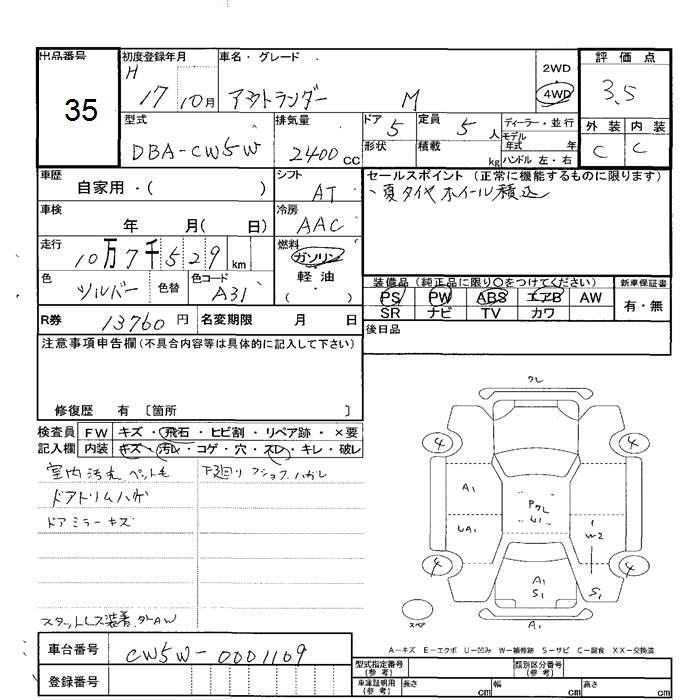 出品番号 初度登録年月 車名・グレード 評価点
35 H 17 10月 アウトランダー M 2WD 4WD 3.5
型式 排気量 ドア 5 定員 5 人 ディーラー・並行 外装 内装
DBA-CW5W 2400cc 形状 積載 kg モデル年式 年 C C
ハンドル 左・右
車歴 シフト セールスポイント (正常に機能するものに限ります)
自家用・( ) AT ・夏タイヤホイール積込
車検 冷房
年 月( 日) AAC
走行 燃料
10万7千529km ガソリン
色 色コード 軽油 装備品(純正品に限り○をつけてください) 新車保証書
シルバー 色替 A31 ( ) PS PW ABS エアB AW 有・無
R券 13760円 名変期限 月 日 SR ナビ TV カワ
注意事項申告欄(不具合内容等は具体的に記入して下さい) 後日品
修復歴 有 〔箇所 〕
検査員 FW キズ・飛石・ヒビ割・リペア跡・×要
記入欄 内装 キズ・汚レ・コゲ・穴・スレ・キレ・破レ
室内汚れ ペット毛 下廻り
ドアトリムハガレ
ドアミラーキズ
スタットレス装着 外AW
ワレ
4 4
A1
UA1
W2
4 4
A1
S1 S1
スペア
A1
車台番号 CW5W-0001109
登録番号
A-キズ E-エクボ U-凹み W-補修跡 S-サビ C-腐食 XX-交換済
型式指定番号(参考) 類別区分番号(参考)
車庫証明用(参考) 長さ cm 幅 cm 高さ cm